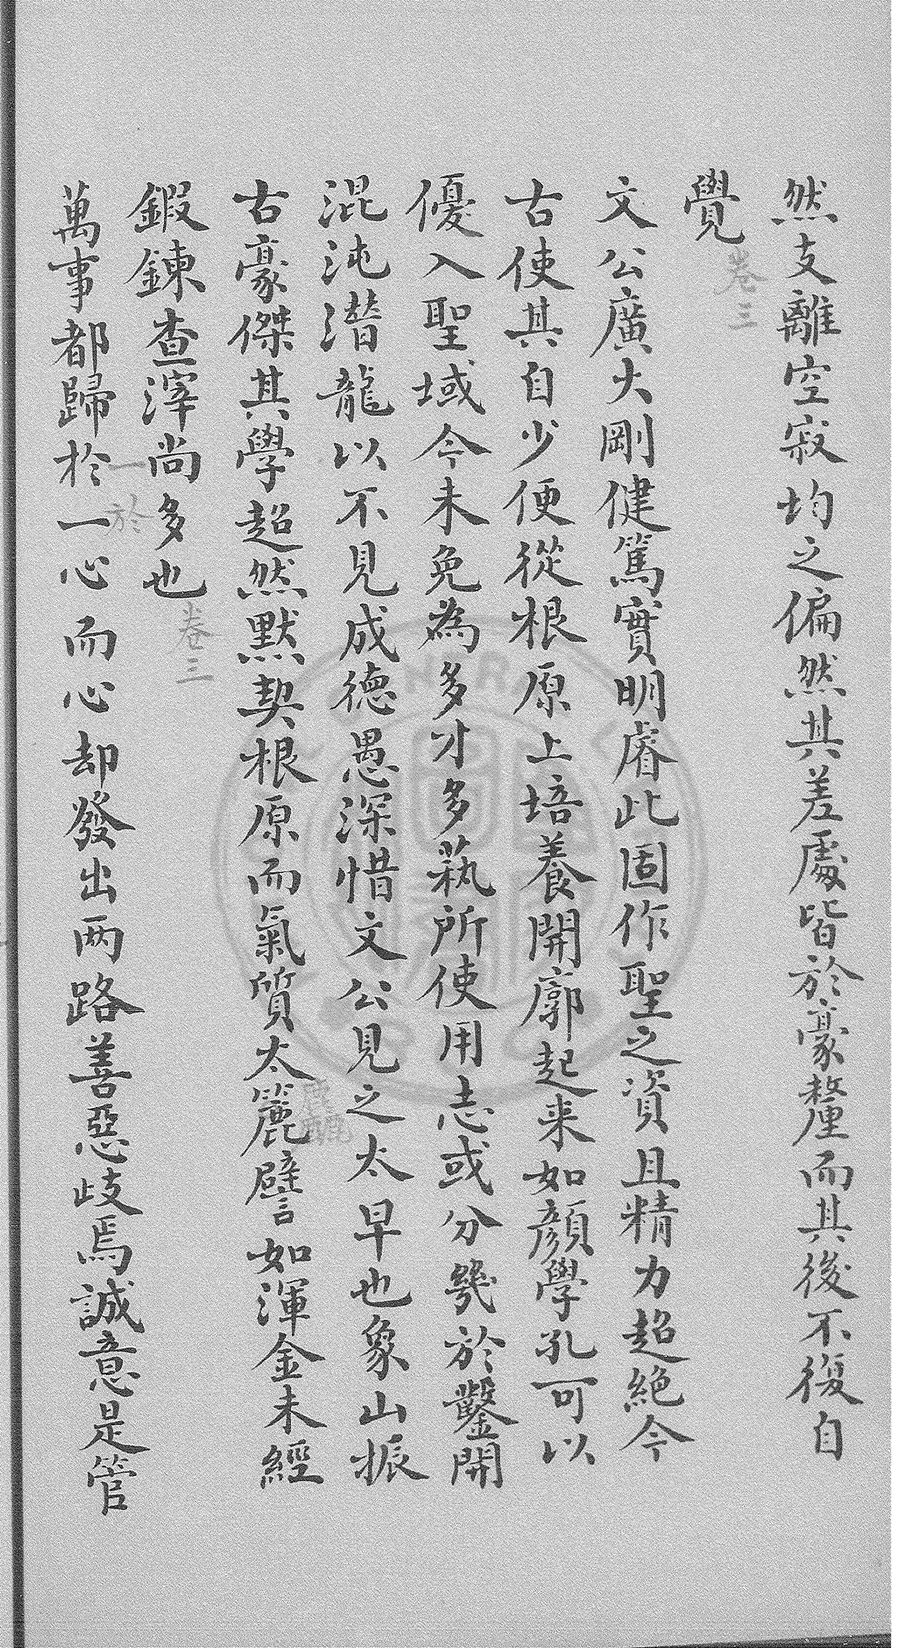 然支離空寂均之偏然其差處皆於豪釐而其後不復自
覺
卷三
文公廣大剛健篤實明睿此固作聖之資且精力超絶今
古使其自少便從根原上培養開廓起来如顔學孔可以
優入聖域今未免為多才多藝所使用志或分幾於鑿開
混沌潛龍以不見成德愚深惜文公見之太早也象山振
古豪傑其學超然默契根原而氣質太麄譬如渾金未經
鍜鍊查滓尚多也
卷三
萬事都歸於一心而心却發出两路善惡歧焉誠意是管
一於